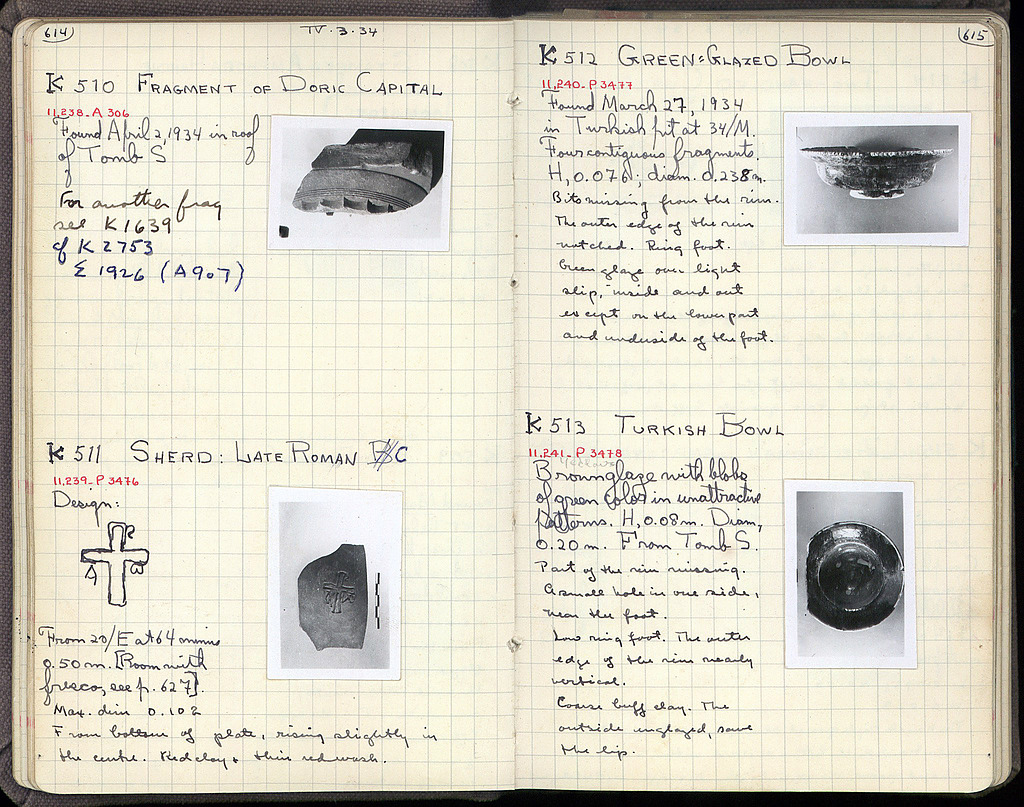 614
IV.3.34
K 510 FRAGMENT OF DORIC CAPITAL
11,238-A 306
Found April 2, 1934 in roof
of Tomb S
For another frag
see K 1639
cf K 2753
Σ 1926 (A907)
K 511 SHERD: LATE ROMAN C
11,239-P 3476
Design:
From 20/E at 64 minus
0.50 m. [Room with
fresco, see p. 627].
Max. dim 0.102
From bottom of plate, rising slightly in
the centre. Red clay & thin red wash.
615
K 512 GREEN-GLAZED BOWL
11,240-P 3477
Found March 27, 1934
in Turkish pit at 34/M.
Four contiguous fragments.
H, 0.076; diam. 0.238 m.
Bits missing from the rim.
The outer edge of the rim
notched. Ring foot.
Green glaze over light
slip, inside and out
except on the lower part
and underside of the foot.
K 513 TURKISH BOWL
11,241-P 3478
Yellow
Brown glaze with blobs
of green color in unattractive
patterns. H, 0.08 m. Diam,
0.20 m. From Tomb S.
Part of the rim missing.
A small hole in one side,
near the foot.
Low ring foot. The outer
edge of the rim nearly
vertical.
Coarse buff clay. The
outside unglazed, save
the lip.